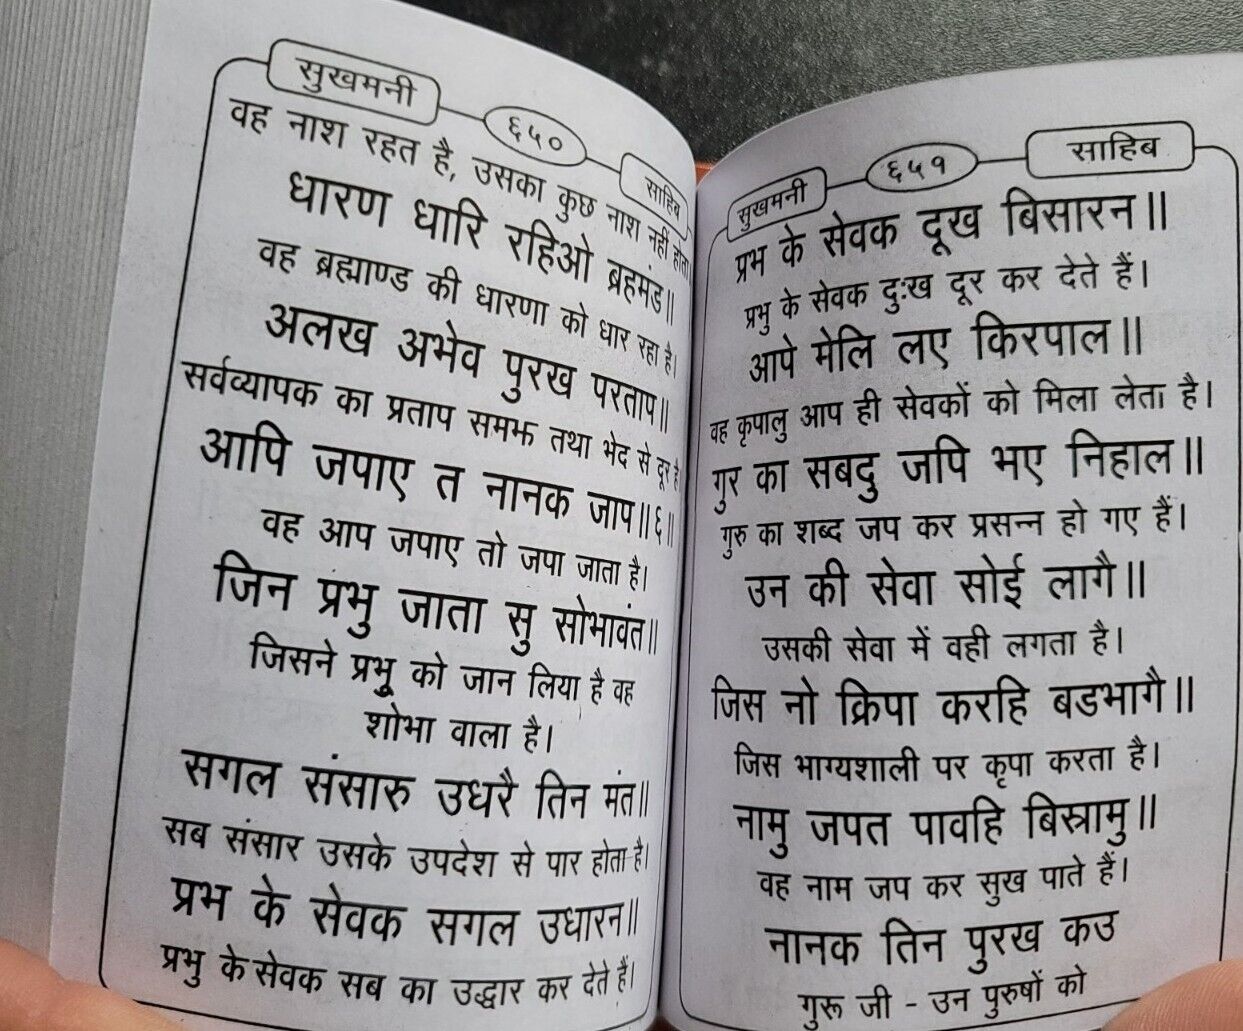 सुखमनी
६५०
साहिब
वह नाश रहत है, उसका कुछ नाश नहीं होता।
धारण धारि रहिओ ब्रहमंड॥
वह ब्रह्माण्ड की धारणा को धार रहा है।
अलख अभेव पुरख परताप॥
सर्वव्यापक का प्रताप समझ तथा भेद से दूर है
आपि जपाए त नानक जाप॥६॥
वह आप जपाए तो जपा जाता है।
जिन प्रभु जाता सु सोभावंत॥
जिसने प्रभु को जान लिया है वह
शोभा वाला है।
सगल संसारु उधरै तिन मंत॥
सब संसार उसके उपदेश से पार होता है।
प्रभ के सेवक सगल उधारन॥
प्रभु के सेवक सब का उद्धार कर देते हैं।
सुखमनी
६५१
साहिब
प्रभ के सेवक दूख बिसारन॥
प्रभु के सेवक दुःख दूर कर देते हैं।
आपे मेलि लए किरपाल॥
वह कृपालु आप ही सेवकों को मिला लेता है।
गुर का सबदु जपि भए निहाल॥
गुरु का शब्द जप कर प्रसन्न हो गए हैं।
उन की सेवा सोई लागै॥
उसकी सेवा में वही लगता है।
जिस नो क्रिपा करहि बडभागै॥
जिस भाग्यशाली पर कृपा करता है।
नामु जपत पावहि बिस्रामु॥
वह नाम जप कर सुख पाते हैं।
नानक तिन पुरख कउ
गुरू जी - उन पुरुषों को